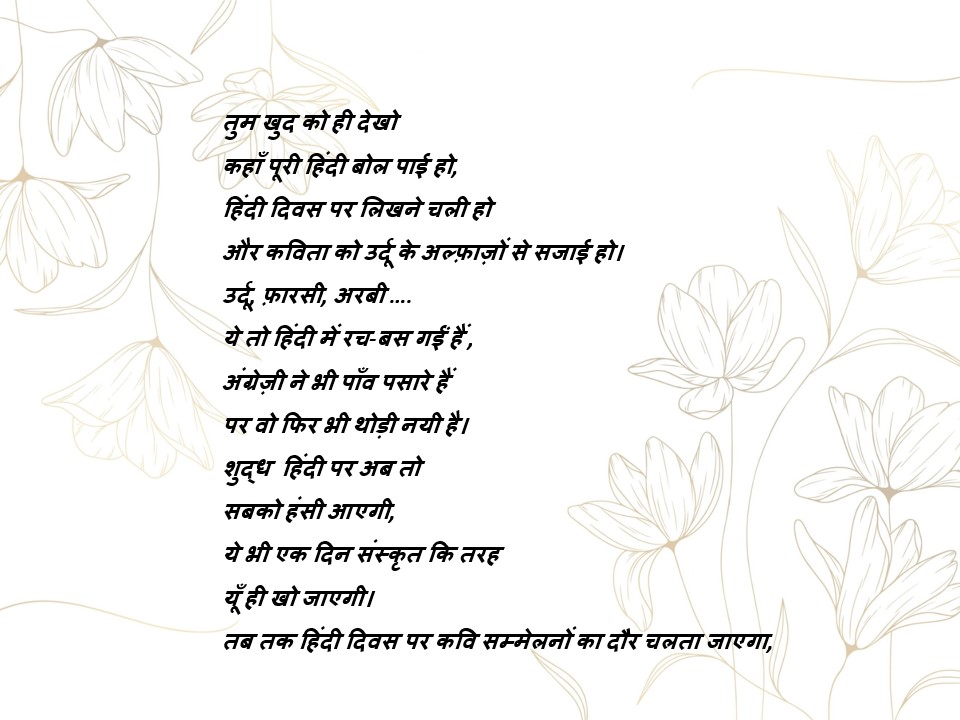 तुम खुद को ही देखो
कहाँ पूरी हिंदी बोल पाई हो,
हिंदी दिवस पर लिखने चली हो
और कविता को उर्दू के अल्फ़ाज़ों से सजाई हो।
उर्दू, फ़ारसी, अरबी ....
ये तो हिंदी में रच-बस गईं हैं ,
अंग्रेज़ी ने भी पाँव पसारे हैं
पर वो फिर भी थोड़ी नयी है।
शुद्ध हिंदी पर अब तो
सबको हंसी आएगी,
ये भी एक दिन संस्कृत कि तरह
यूँ ही खो जाएगी।
तब तक हिंदी दिवस पर कवि सम्मेलनों का दौर चलता जाएगा,